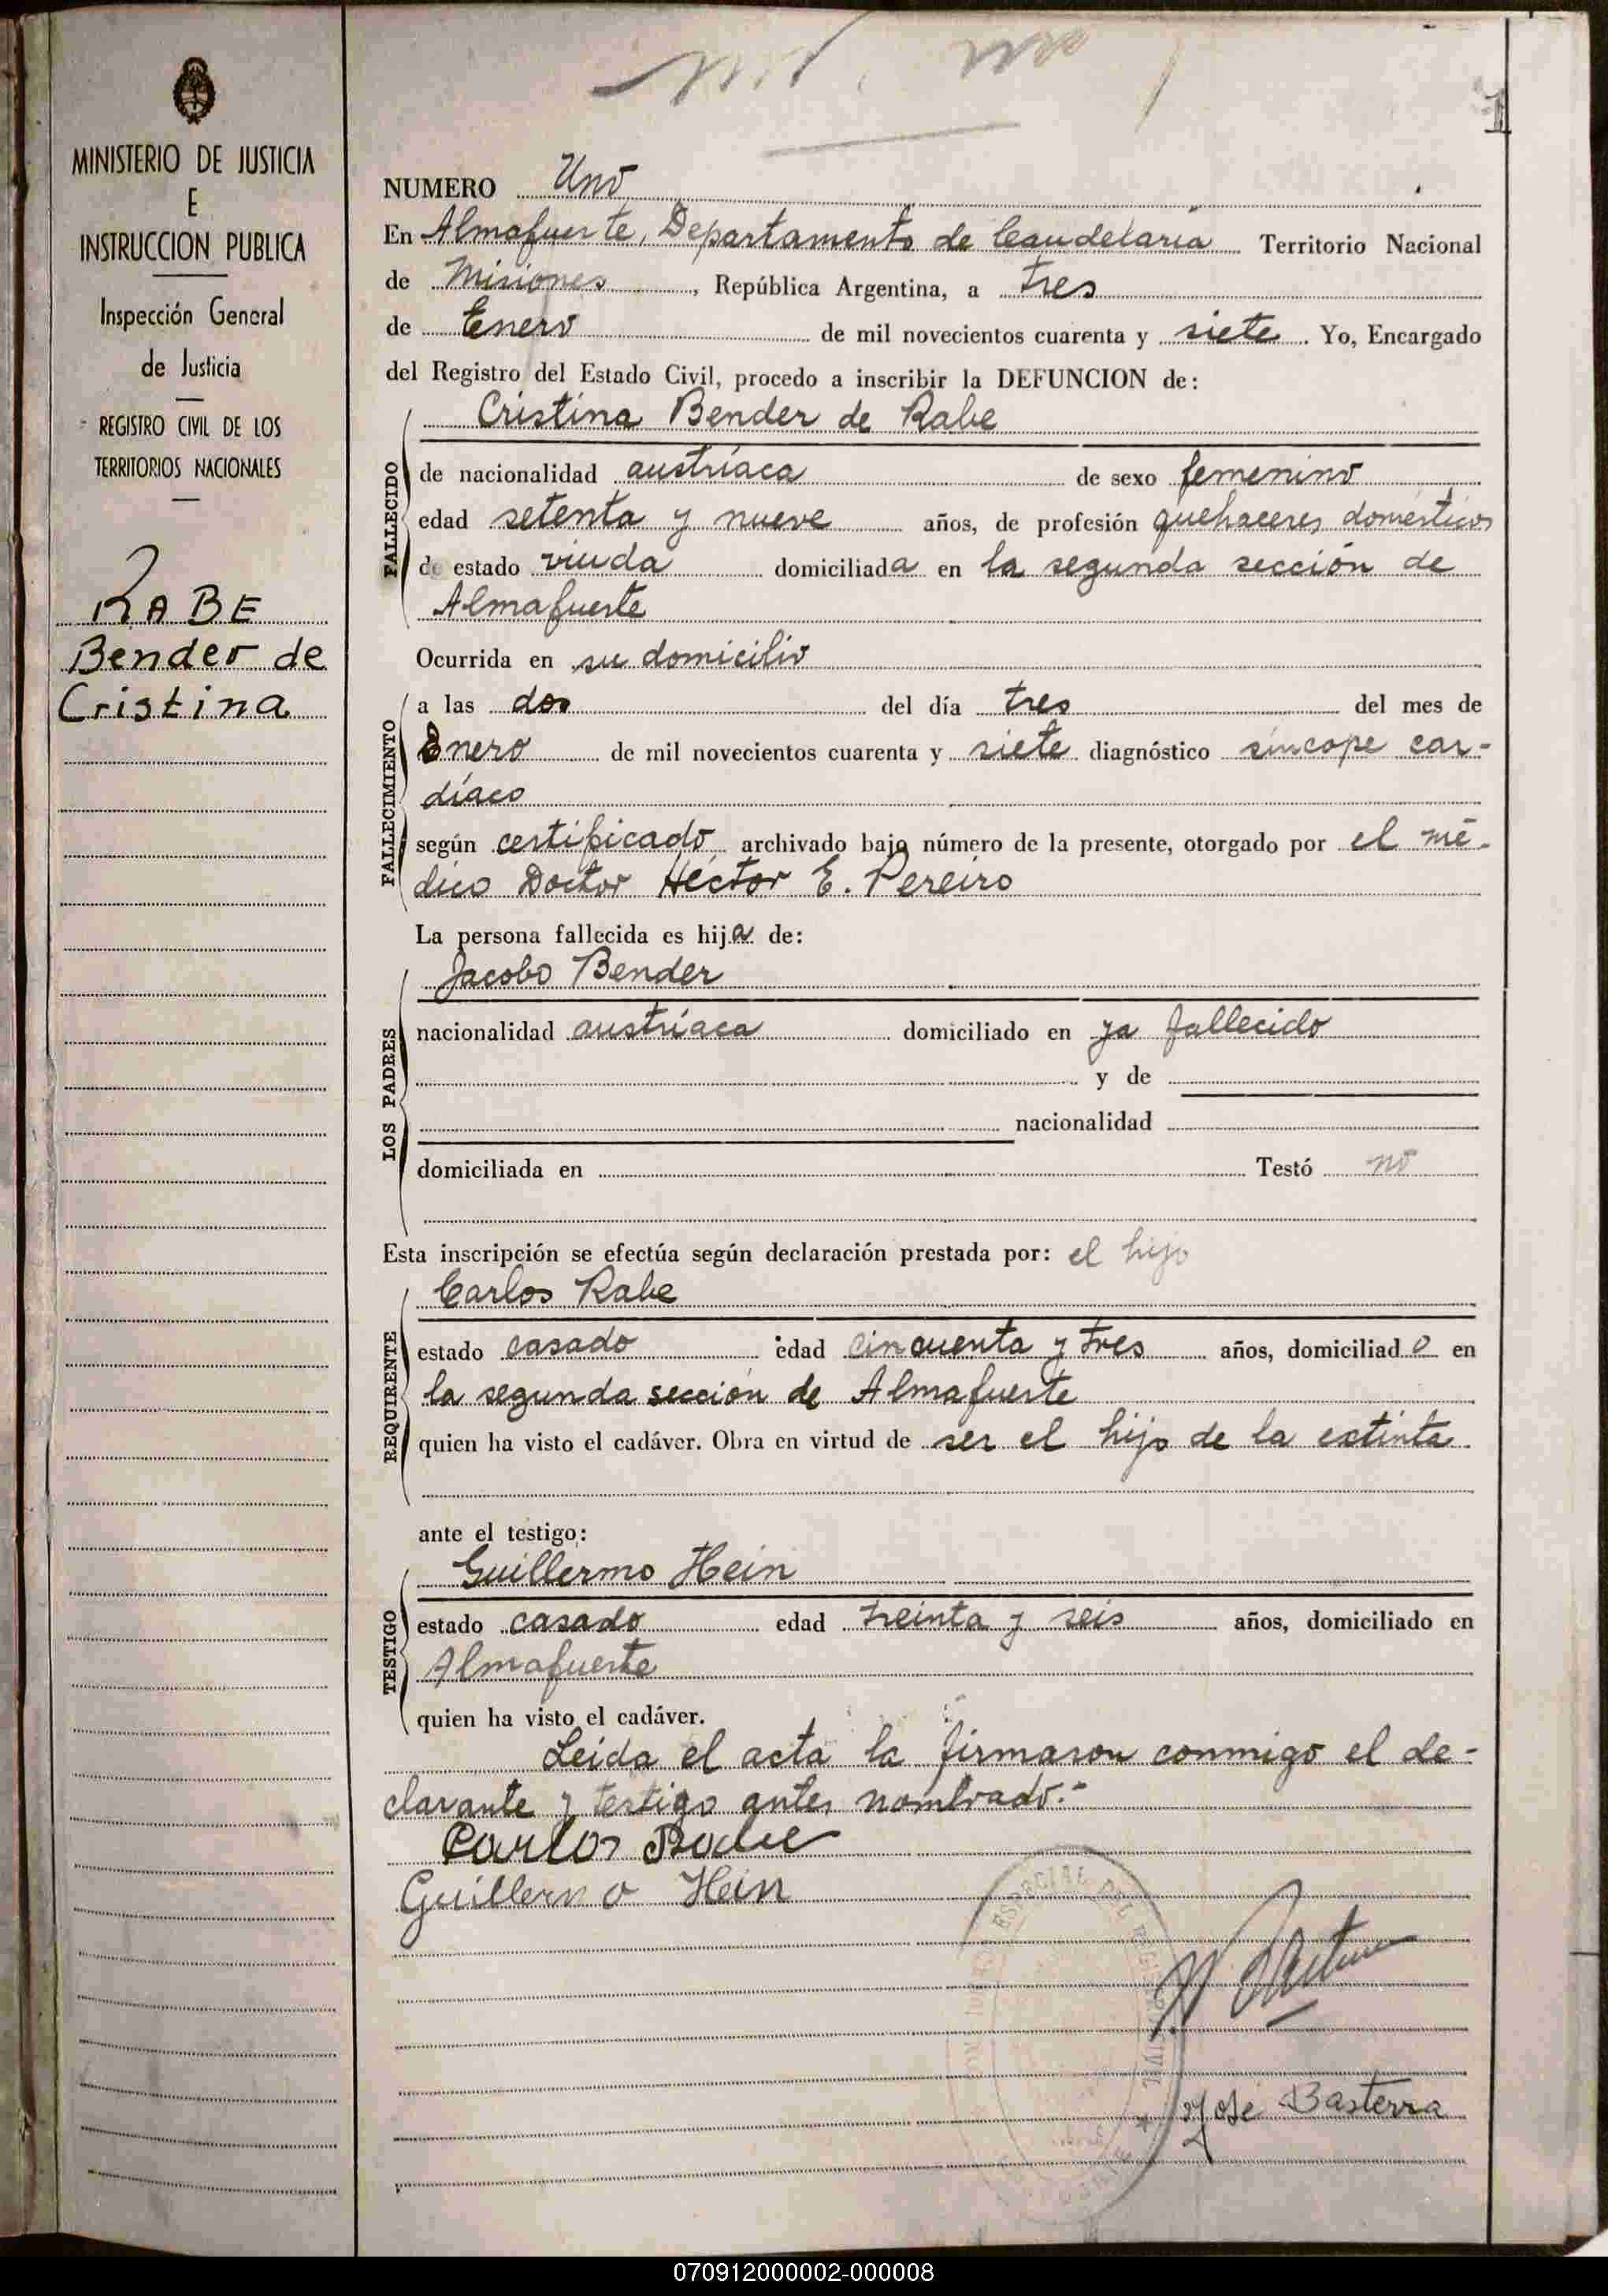 MINISTERIO DE JUSTICIA
E
INSTRUCCION PUBLICA
Inspección General
de Justicia
REGISTRO CIVIL DE LOS
TERRITORIOS NACIONALES
RABE
Bender de
Cristina
1
NUMERO Uno
En Almafuerte, Departamento de Candelaria Territorio Nacional
de Misiones, República Argentina, a tres
de Enero de mil novecientos cuarenta y siete. Yo, Encargado
del Registro del Estado Civil, procedo a inscribir la DEFUNCION de:
Cristina Bender de Rabe
FALLECIDO
de nacionalidad austríaca de sexo femenino
edad setenta y nueve años, de profesión quehaceres domésticos
de estado viuda domiciliada en la segunda sección de
Almafuerte
Ocurrida en su domicilio
FALLECIMIENTO
a las dos del día tres del mes de
Enero de mil novecientos cuarenta y siete diagnóstico síncope car-
díaco
según certificado archivado bajo número de la presente, otorgado por el mé-
dico Doctor Héctor E. Pereiro
La persona fallecida es hija de:
Jacobo Bender
LOS PADRES
nacionalidad austríaca domiciliado en ya fallecido
y de
nacionalidad
domiciliada en Testó no
Esta inscripción se efectúa según declaración prestada por: el hijo
Carlos Rabe
REQUIRENTE
estado casado edad cincuenta y tres años, domiciliado en
la segunda sección de Almafuerte
quien ha visto el cadáver. Obra en virtud de ser el hijo de la extinta
ante el testigo:
Guillermo Hein
TESTIGO
estado casado edad treinta y seis años, domiciliado en
Almafuerte
quien ha visto el cadáver.
Leída el acta la firmaron conmigo el de-
clarante y testigo antes nombrado.-
Carlos Rabe
Guillermo Hein
ESPECIAL DEL REGISTRO CIVIL
José Basterra
070912000002-000008